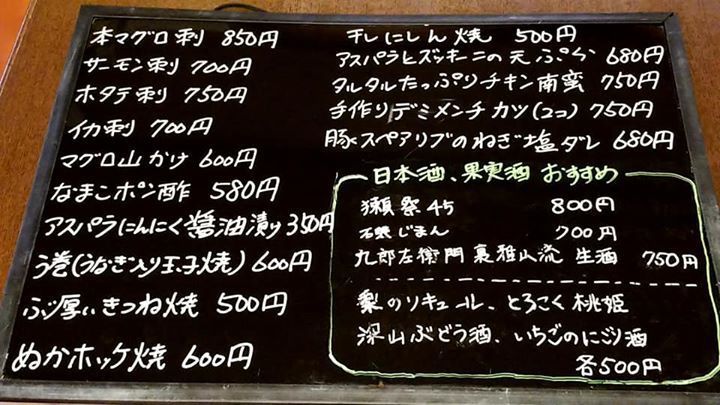 本マグロ刺 850円
サーモン刺 700円
ホタテ刺 750円
イカ刺 700円
マグロ山かけ 600円
なまこポン酢 580円
アスパラにんにく醤油漬り 350円
う巻(うなぎ入り玉子焼) 600円
ぶ厚いきつね焼 500円
ぬかホッケ焼 600円
干しにしん焼 500円
アスパラとズッキーニの天ぷら 680円
タルタルたっぷりチキン南蛮 750円
手作りデミメンチカツ(2コ) 750円
豚スペアリブのねぎ塩ダレ 680円
日本酒、果実酒 おすすめ
獺祭45 800円
磯じまん 700円
九郎左衛門 裏雅山流 生酒 750円
梨のリキュール、とろこく桃姫
深山ぶどう酒、いちごのにごり酒
各500円